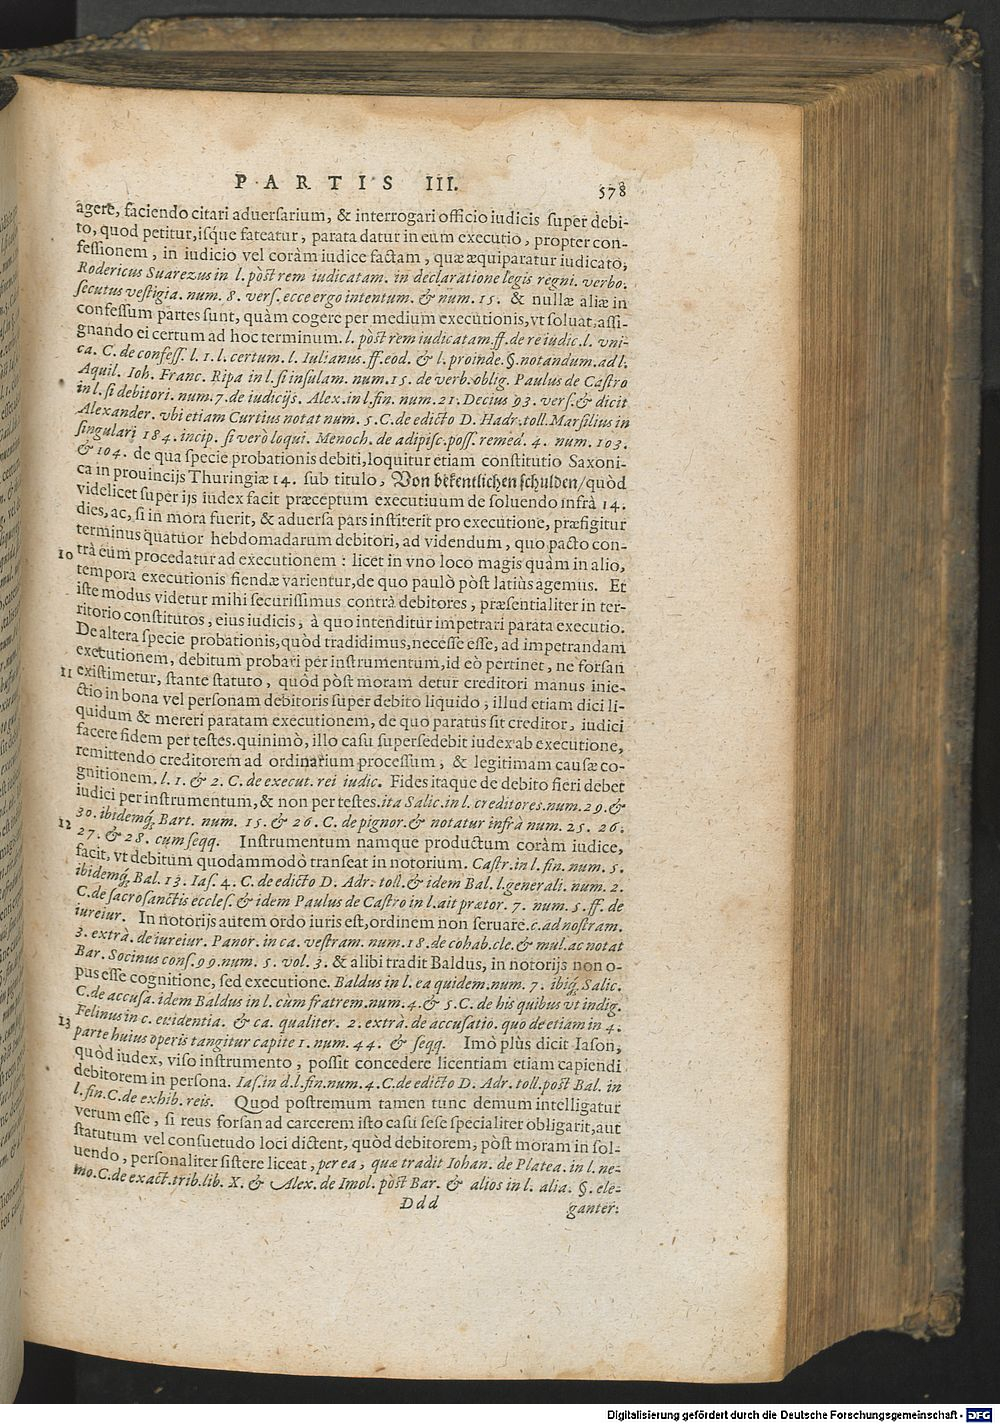 PARTIS III. 578
agere, faciendo citari aduersarium, & interrogari officio iudicis super debi-
to, quod petitur, isque fateatur, parata datur in eum executio, propter con-
fessionem, in iudicio vel coràm iudice factam, quæ æquiparatur iudicato,
Rodericus Suarezus in l. pòst rem iudicatam. in declaratione legis regni. verbo.
secutus vestigia. num. 8. vers. ecce ergo intentum. & num. 15. & nullæ aliæ in
confessum partes sunt, quàm cogere per medium executionis, vt soluat, assi-
gnando ei certum ad hoc terminum. l. pòst rem iudicatam. ff. de re iudic. l. vni-
ca. C. de confess. l. 1. l. certum. l. Iulianus. ff. eod. & l. proinde. §. notandum. ad l.
Aquil. Ioh. Franc. Ripa in l. si insulam. num. 15. de verb. oblig. Paulus de Castro
in l. si debitori. num. 7. de iudicijs. Alex. in l. fin. num. 21. Decius 93. vers. & dicit
Alexander. vbi etiam Curtius notat num. 5. C. de edicto D. Hadr. toll. Marsilius in
singulari 184. incip. si verò loqui. Menoch. de adipisc. poss. remed. 4. num. 103.
& 104. de qua specie probationis debiti, loquitur etiam constitutio Saxoni-
ca in prouincijs Thuringiæ 14. sub titulo, Von bekentlichen schulden/ quòd
videlicet super ijs iudex facit præceptum executiuum de soluendo infrà 14.
dies, ac, si in mora fuerit, & aduersa pars institerit pro executione, præfigitur
terminus quatuor hebdomadarum debitori, ad videndum, quo pacto con-
10 trà eum procedatur ad executionem : licet in vno loco magis quàm in alio,
tempora executionis fiendæ varientur, de quo paulò pòst latiùs agemus. Et
iste modus videtur mihi securissimus contrà debitores, præsentialiter in ter-
ritorio constitutos, eius iudicis, à quo intenditur impetrari parata executio.
De altera specie probationis, quòd tradidimus, necesse esse, ad impetrandam
executionem, debitum probari per instrumentum, id eò pertinet, ne forsan
11 existimetur, stante statuto, quòd pòst moram detur creditori manus inie-
ctio in bona vel personam debitoris super debito liquido, illud etiam dici li-
quidum & mereri paratam executionem, de quo paratus sit creditor, iudici
facere fidem per testes. quinimò, illo casu supersedebit iudex ab executione,
remittendo creditorem ad ordinarium processum, & legitimam causæ co-
gnitionem. l. 1. & 2. C. de execut. rei iudic. Fides itaque de debito fieri debet
iudici per instrumentum, & non per testes. ita Salic. in l. creditores. num. 29. &
30. ibidemq́. Bart. num. 15. & 26. C. de pignor. & notatur infrà num. 25. 26.
12 27. & 28. cum seqq. Instrumentum namque productum coràm iudice,
facit, vt debitum quodammodò transeat in notorium. Castr. in l. fin. num. 5.
ibidemq́. Bal. 13. Ias. 4. C. de edicto D. Adr. toll. & idem Bal. l. generali. num. 2.
C. de sacrosanctis eccles. & idem Paulus de Castro in l. ait prætor. 7. num. 5. ff. de
iureiur. In notorijs autem ordo iuris est, ordinem non seruare. c. ad nostram.
3. extrà. de iureiur. Panor. in ca. vestram. num. 18. de cohab. cle. & mul. ac notat
Bar. Socinus cons. 99. num. 5. vol. 3. & alibi tradit Baldus, in notorijs non o-
pus esse cognitione, sed executione. Baldus in l. ea quidem. num. 7. ibiq́. Salic.
C. de accusa. idem Baldus in l. cùm fratrem. num. 4. & 5. C. de his quibus vt indig.
Felinus in c. euidentia. & ca. qualiter. 2. extrà. de accusatio. quo de etiam in 4.
13 parte huius operis tangitur capite 1. num. 44. & seqq. Imò plùs dicit Iason,
quòd iudex, viso instrumento, possit concedere licentiam etiam capiendi
debitorem in persona. Ias. in d. l. fin. num. 4. C. de edicto D. Adr. toll. post Bal. in
l. fin. C. de exhib. reis. Quod postremum tamen tunc demum intelligatur
verum esse, si reus forsan ad carcerem isto casu sese specialiter obligarit, aut
statutum vel consuetudo loci dictent, quòd debitorem, pòst moram in sol-
uendo, personaliter sistere liceat, per ea, quæ tradit Iohan. de Platea. in l. ne-
mo. C. de exact. trib. lib. X. & Alex. de Imol. pòst Bar. & alios in l. alia. §. ele-
Ddd ganter.
Digitalisierung gefördert durch die Deutsche Forschungsgemeinschaft - DFG